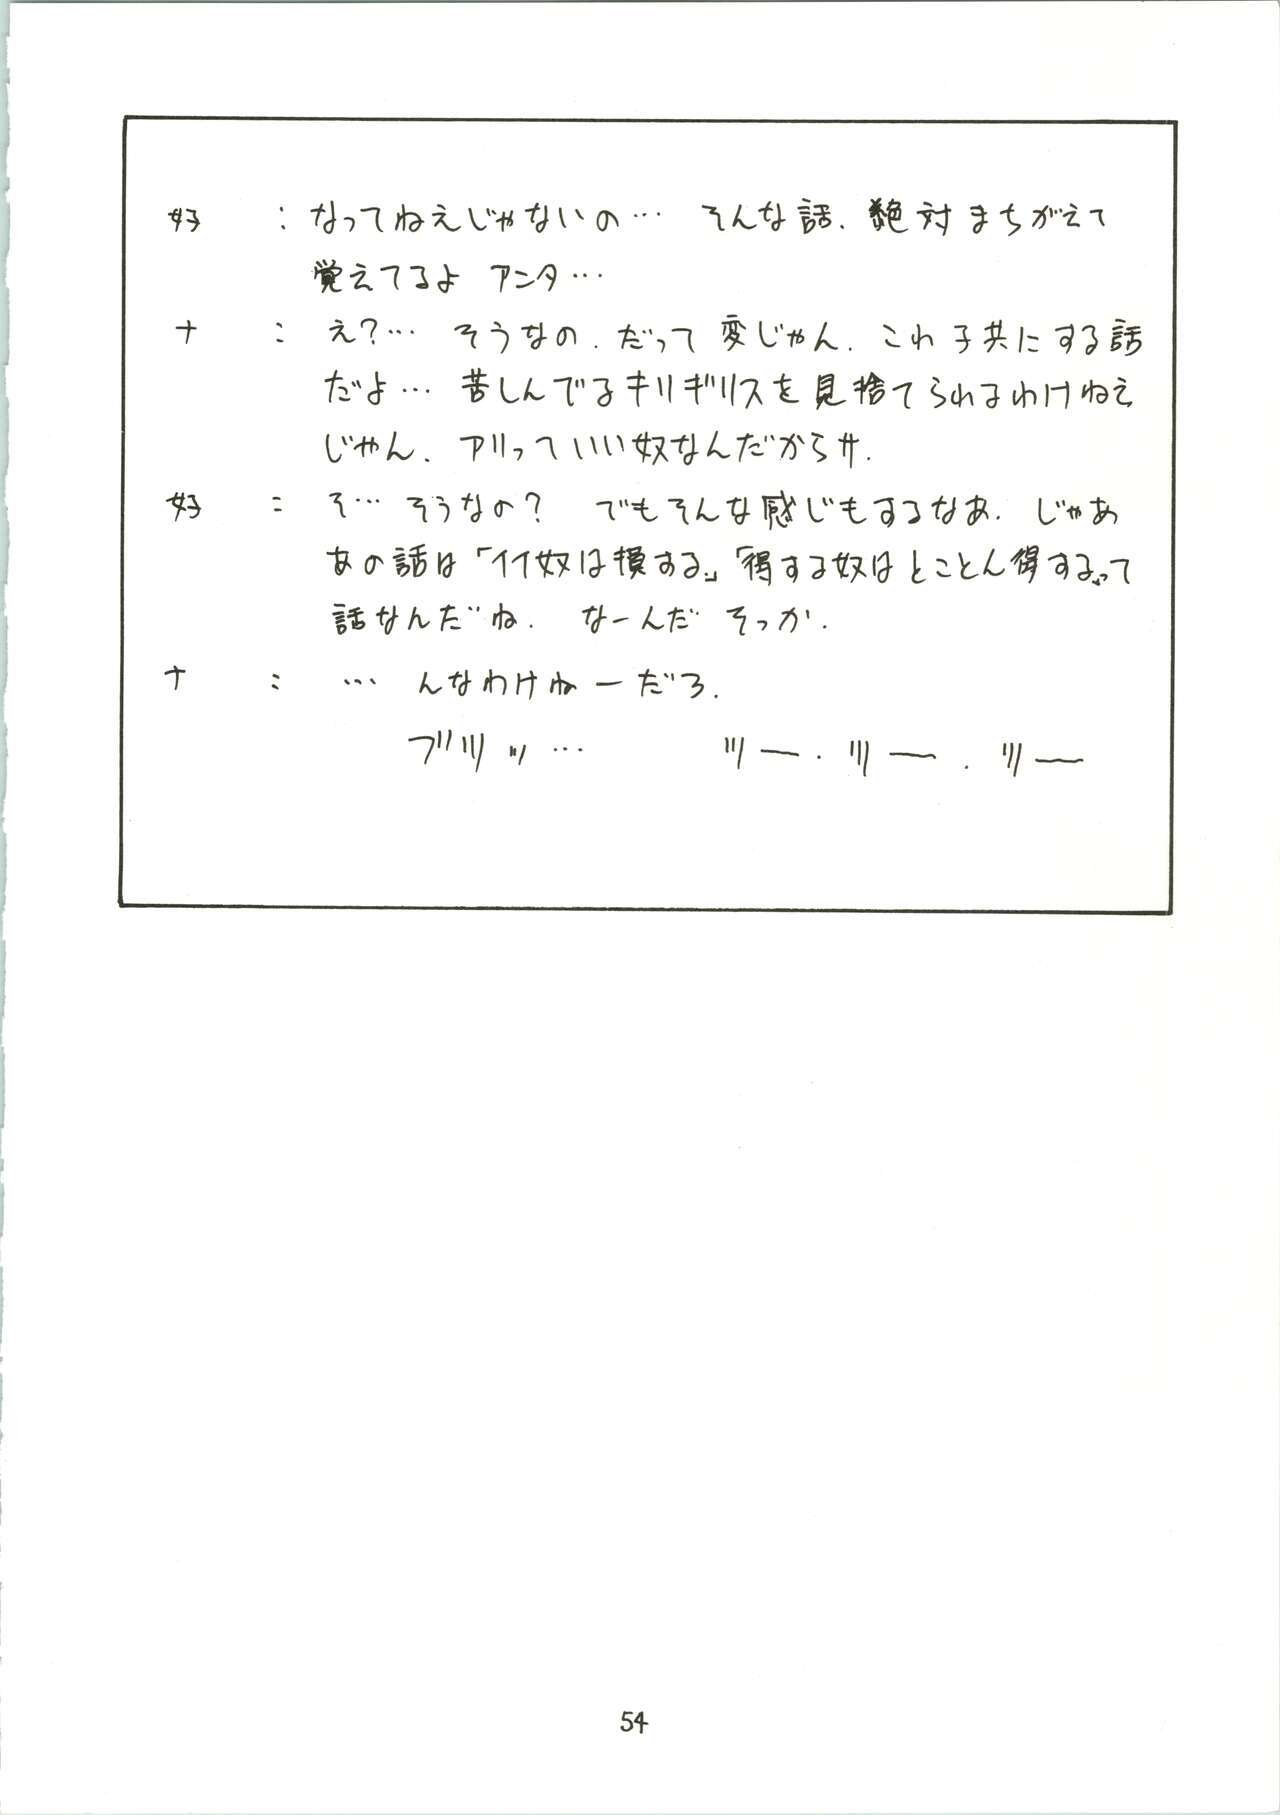 好 : なってねえじゃないの… そんな話、絶対まちがえて
覚えてるよ アンタ…
ナ : え?… そうなの、だって変じゃん、これ子共にする話
だよ… 苦しんでるキリギリスを見捨てられるわけねえ
じゃん、アリっていい奴なんだからサ.
好 : そ… そうなの? でもそんな感じもするなあ. じゃあ
あの話は「イイ奴は損する」「得する奴はとことん得する」って
話なんだね. なーんだ そっか.
ナ : … んなわけねーだろ.
ブツッ… ツー. ツー. ツー
54